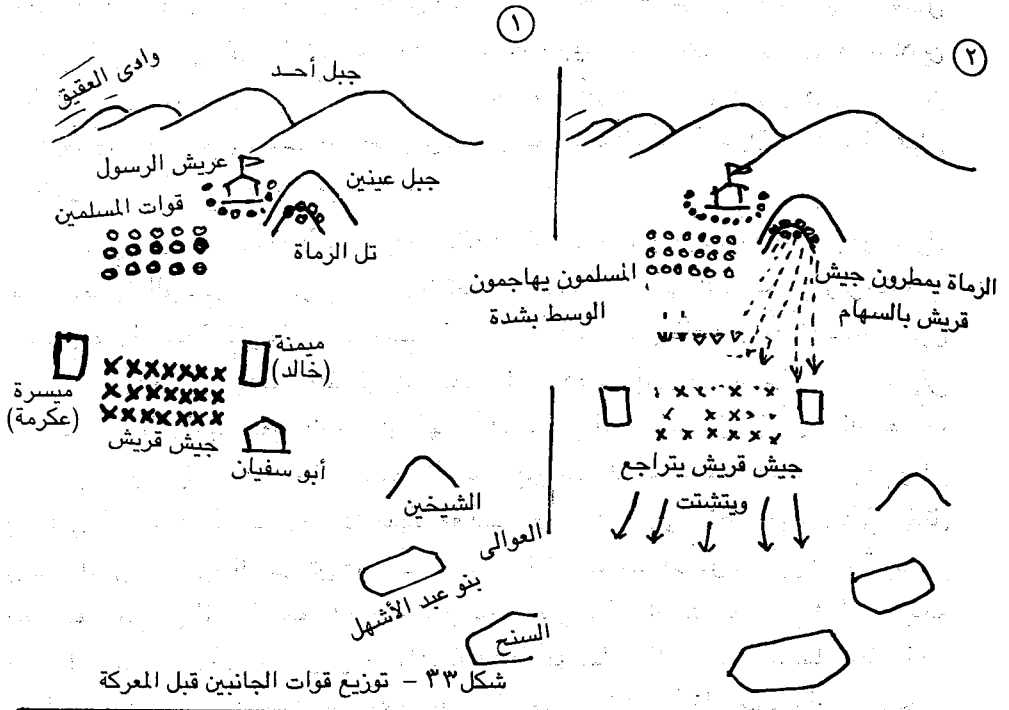 ١
وادى العقيق
جبل أحـد
عريش الرسول
جبل عينين
قوات المسلمين
تل الرماة
ميمنة
(خالد)
ميسرة
(عكرمة)
جيش قريش
أبو سفيان
الشيخين
العوالى
بنو عبد الأشهل
السنح
شكل٣٣ – توزيع قوات الجانبين قبل المعركة
٢
الرماة يمطرون جيش
قريش بالسهام
المسلمون يهاجمون
الوسط بشدة
جيش قريش يتراجع
ويتشتت